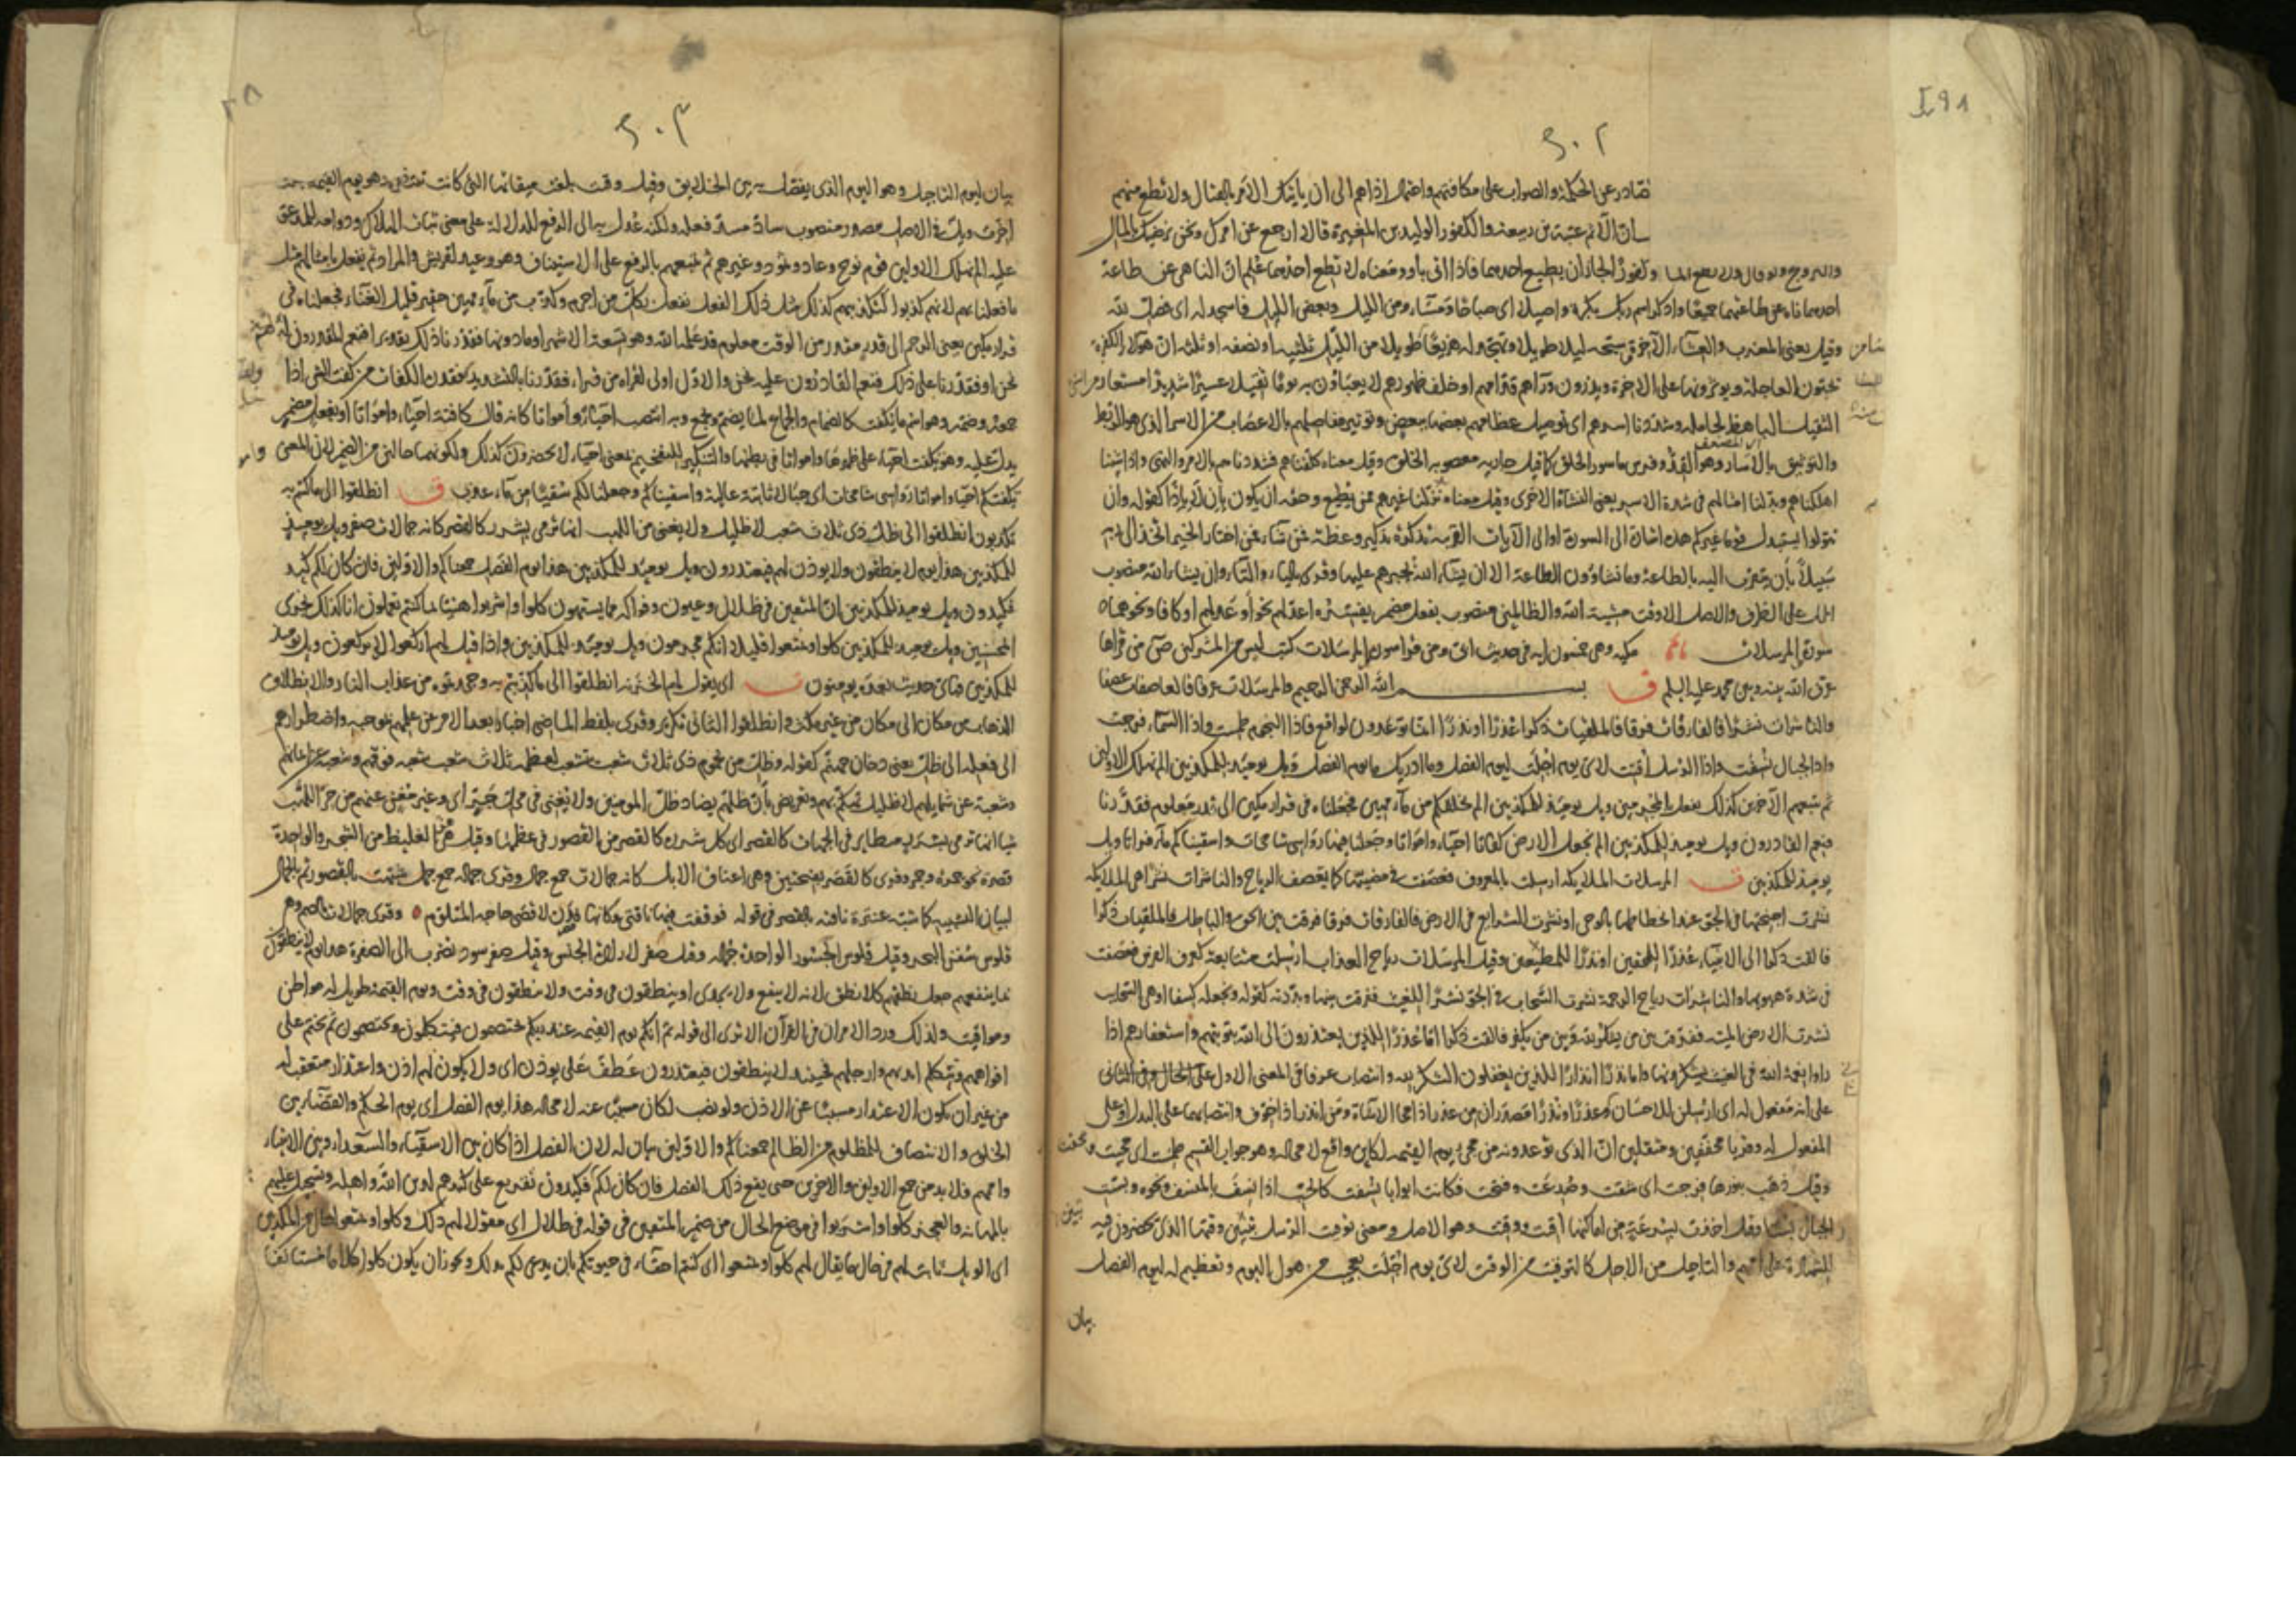 ٢٠٢
صادر عن الحكمة والصواب على مكافتهم واحتمال اذاهم الى ان ياتيك الامر بالقتال ولا تطع منهم
الاثم عتبة بن ربيعة والكفور الوليد بن المغيرة قالا ارجع عن امرك ونحن نرضيك بالمال
والتزويج ولو قال ولا تطع وكفورا لجاز ان يطيع احدهما فاذا اتى باو ومعناه لا تطع احدهما علم ان الناهى عن طاعة
احدهما ناه عن طاعتهما جميعا واذكر اسم ربك بكرة واصيلا اى صباحا ومساء ومن الليل وبعض الليل فاسجد له اى فصل لله
وقيل يعنى المغرب والعشاء الاخرة وسبحه ليلا طويلا وتهجد له هزيعا طويلا من الليل ثلثيه او نصفه او ثلثه ان هولاء الكفرة
يحبون العاجلة ويوثرونها على الاخرة ويذرون ورآءهم قدامهم او خلف ظهورهم لا يعباون به يوما ثقيلا عسيرا شديدا مستعار من
الثقيل الباهظ لحامله وشددنا اسرهم اى توصيل عظامهم بعضها ببعض وتوثير مفاصلهم بالاعصاب من الاسر الذى هو الربط
والتوثيق بالاسار وهو القد وفرس ماسور الخلق كما قيل جارية معصوبة الخلق وقيل معناه كلفناهم فشددناهم بالامر والنهى واذا شئنا
اهلكناهم وبدلنا امثالهم فى شدة الاسر يعنى النشأة الاخرى وقيل معناه بدلنا غيرهم ممن يطيع وحقه ان يكون بإن لا بإذا كقوله وان
تتولوا يستبدل قوما غيركم هذه اشارة الى السورة او الى الآيات القريبة تذكرة تذكير وعظة فمن شاء فمن اختار الخير اتخذ الى ربه
سبيلا بأن يتقرب اليه بالطاعة وما تشاؤون الطاعة الا ان يشاء الله بجبرهم عليها وقرى بالياء والتاء وان يشاء الله منصوب
المحل على الظرف والاصل الا وقت مشية الله والظالمين منصوب بفعل مضمر يفسره اعد لهم نحو أوعد لهم او كافا ونحوهما
سورة المرسلات مكية وهى خمسون اية فى حديث ابى ومن قرا سورة المرسلات كتب ليس من المشركين من قراها
عرف الله بينه وبين محمد عليه السلم ق بسم الله الرحمن الرحيم والمرسلات عرفا فالعاصفات عصفا
والناشرات نشرا فالفارقات فرقا فالملقيات ذكرا عذرا او نذرا انما توعدون لواقع فاذا النجوم طمست واذا السماء فرجت
واذا الجبال نسفت واذا الرسل اقتت لاى يوم اجلت ليوم الفصل وما ادريك ما يوم الفصل ويل يومئذ للمكذبين الم نهلك الاولين
ثم نتبعهم الاخرين كذلك نفعل بالمجرمين ويل يومئذ للمكذبين الم نخلقكم من ماء مهين فجعلناه فى قرار مكين الى قدر معلوم فقدرنا
فنعم القادرون ويل يوميذ للمكذبين الم نجعل الارض كفاتا احياء وامواتا وجعلنا فيها رواسى شامخات واسقيناكم ماء فراتا ويل
يوميذ للمكذبين ت المرسلات الملايكة ارسلت بالمعروف فعصفت فى مضيها كما يعصف الرياح والناشرات نشرا هى الملايكة
نشرت اجنحتها فى الجو عند انحطاطها بالوحى او نشرت الشرايع فى الارض فالفارقات فرقا فرقت بين الحق والباطل فالملقيات ذكرا
فالقت ذكرا الى الانبياء عذرا للمحقين او نذرا للمبطلين وقيل المرسلات رياح العذاب ارسلت متتابعة كعرف الفرس فعصفت
فى شدة هبوبها والناشرات رياح الرحمة نشرت السحاب فى الجو نشرا للغيث ففرقت بينها وبددته كقوله ويجعله كسفا او هى السحاب
نشرت الارض الميتة ففرقت بين من يشكر لله وبين من يكفر فالقت ذكرا اما عذرا للذين يعتذرون الى الله بتوبتهم واستغفارهم اذا
راوا نعمة الله فى الغيث يشكرونها واما نذرا انذارا للذين يغفلون الشكر لله وانتصاب عرفا فى المعنى الاول على الحال وفى الثانى
على انه مفعول له اى ارسلن للاحسان وعذرا ونذرا مصدران من عذر اذا محا الاساءة ومن انذر اذا خوف وانتصابهما على البدل او على
المفعول له وقريا مخففين ومثقلين ان الذى توعدونه من مجئ يوم القيمة لكاين واقع لا محالة وهو جواب القسم طمست اى محيت ومحقت
وقيل ذهب بنورها فرجت اى شقت وصدعت وفتحت فكانت ابوابا نسفت كالحب اذا نسف بالمنسف ونحوه وبست
الجبال بسا وقيل اخذت بسرعة من اماكنها اقتت ووقتت وهو الاصل ومعنى توقيت الرسل تبيين وقتها الذى يحضرون فيه
للشهادة على اممهم والتاجيل من الاجل كالتوقيت من الوقت لاى يوم اجلت تعجيب من هول اليوم وتعظيم له ليوم الفصل
بيان
٢٠٣
بيان ليوم التاجيل وهو اليوم الذى يفصل فيه بين الخلايق وقيل وقتت بلغت ميقاتها التى كانت تنتظره وهو يوم القيمة
اخرت ويل فى الاصل مصدر منصوب ساد مسد فعله ولكنه عدل به الى الرفع للدلالة على معنى ثبات الهلاك ودوامه للمدعو
عليه الم نهلك الاولين قوم نوح وعاد وثمود وغيرهم ثم نتبعهم بالرفع على الاستيناف وهو وعيد لقريش والمراد ثم نفعل بامثالهم مثل
ما فعلنا بهم لانهم كذبوا كتكذيبهم كذلك مثل ذلك الفعل نفعل بكل من اجرم وكذب من ماء مهين حقير قليل الغناء فجعلناه فى
قرار مكين يعنى الرحم الى قدر مقدور من الوقت معلوم قد علمه الله وهو تسعة الاشهر او ما دونها فقدرنا ذلك تقديرا فنعم المقدرون له
نحن او فقدرنا على ذلك فنعم القادرون عليه نحن والاول اولى لقراءة من قرا فقدرنا بالتشديد الكفات من كفت الشى اذا
جمعه وضمه وهو اسم ما يكفت كالضمام والجماع لما يضم ويجمع وبه انتصب احياء وامواتا كانه قال كافتة احياء وامواتا او بفعل مضمر
يدل عليه وهو يكفت احياء على ظهرها وامواتا فى بطنها والتنكير للتفخيم بمعنى احياء لا يحصرون كذلك ولكونهما حالين من الضمير لان المعنى
يكفتكم احياء وامواتا رواسى شامخات اى جبالا ثابتة عالية واسقيناكم وجعلنا لكم سقيا من ماء عذب ق انطلقوا الى ما كنتم به
تكذبون انطلقوا الى ظل ذى ثلاث شعب لا ظليل ولا يغنى من اللهب انها ترمى بشرر كالقصر كانه جمالات صفر ويل يوميذ
للمكذبين هذا يوم لا ينطقون ولا يوذن لهم فيعتذرون ويل يوميذ للمكذبين هذا يوم الفصل جمعناكم والاولين فان كان لكم كيد
فكيدون ويل يوميذ للمكذبين ان المتقين فى ظلال وعيون وفواكه مما يشتهون كلوا واشربوا هنيئا بما كنتم تعملون انا كذلك نجزى
المحسنين ويل يوميذ للمكذبين كلوا وتمتعوا قليلا انكم مجرمون ويل يوميذ للمكذبين واذا قيل لهم اركعوا لا يركعون ويل يوميذ
للمكذبين فباى حديث بعده يومنون ت اى يقول لهم الخزنة انطلقوا الى ما كذبتم به من عذاب النار والانطلاق
الذهاب من مكان الى مكان من غير مكث وانطلقوا الثانى تكرير وقرى بلفظ الماضى اخبارا بعد الامر عن عملهم بموجبه واضطرارهم
الى فعله الى ظل يعنى دخان جهنم كقوله وظل من يحموم ذى ثلاث شعب تتشعب لعظمه ثلاث شعب شعبة فوقهم وشعبة عن ايمانهم
وشعبة عن شمايلهم لا ظليل تهكم بهم وتعريض بأن ظلهم يضاد ظل المومنين ولا يغنى فى محل الجر اى وغير مغن عنهم من حر اللهب
شيا انها ترمى بشرر يتطاير فى الجهات كالقصر اى كل شررة كالقصر من القصور فى عظمها وقيل هو الغليظ من الشجر والواحدة
قصرة نحو جمرة وجمر وقرى كالقصر بفتحتين وهى اعناق الابل كانه جمالات جمع جمال وقرى جمالة جمع جمل شبهت بالقصور ثم بالجمال
لبيان التشبيه كما شبه عنترة ناقته بالقصر فى قوله فوقفت فيها ناقتى وكانها فدن لاقضى حاجة المتلوم وقرى جمالات بالضم وهى
قلوس سفن البحر وقيل قلوس الجسور الواحدة جمالة وقيل صفر لارادة الجنس وقيل صفر سود تضرب الى الصفرة هذا يوم لا ينطقون
بما ينفعهم جعل نطقهم كلا نطق لانه لا ينفع ولا يجدى او ينطقون فى وقت ولا ينطقون فى وقت ويوم القيمة طويل له مواطن
ومواقيت ولذلك ورد الامران فى القرآن الا ترى الى قوله ثم انكم يوم القيمة عند ربكم تختصمون فيتكلمون ويختصمون ثم يختم على
افواههم وتتكلم ايديهم وارجلهم فحينيذ لا ينطقون فيعتذرون عطف على يوذن اى ولا يكون لهم اذن واعتذار متعقب له
من غير ان يكون الاعتذار مسببا عن الاذن ولو نصب لكان مسببا عنه لا محالة هذا يوم الفصل اى يوم الحكم والقضاء بين
الخلق والانتصاف للمظلوم من الظالم جمعناكم والاولين بيان له لان الفصل اذا كان بين الاشقياء والسعداء وبين الانبياء
واممهم فلا بد من جمع الاولين والاخرين حتى يقع ذلك الفصل فان كان لكم كيد فكيدون تقريع على كيدهم لدين الله واهله وتسجيل عليهم
بالمهانة والعجز كلوا واشربوا فى موضع الحال من ضمير المتقين فى قوله فى ظلال اى مقولا لهم ذلك وكلوا وتمتعوا حال من المكذبين
اى الويل ثابت لهم فى حال ما يقال لهم كلوا وتمتعوا اى كنتم احقاء فى حيوتكم بان يدعى لكم بذلك ويجوز ان يكون كلوا كلاما مستانفا